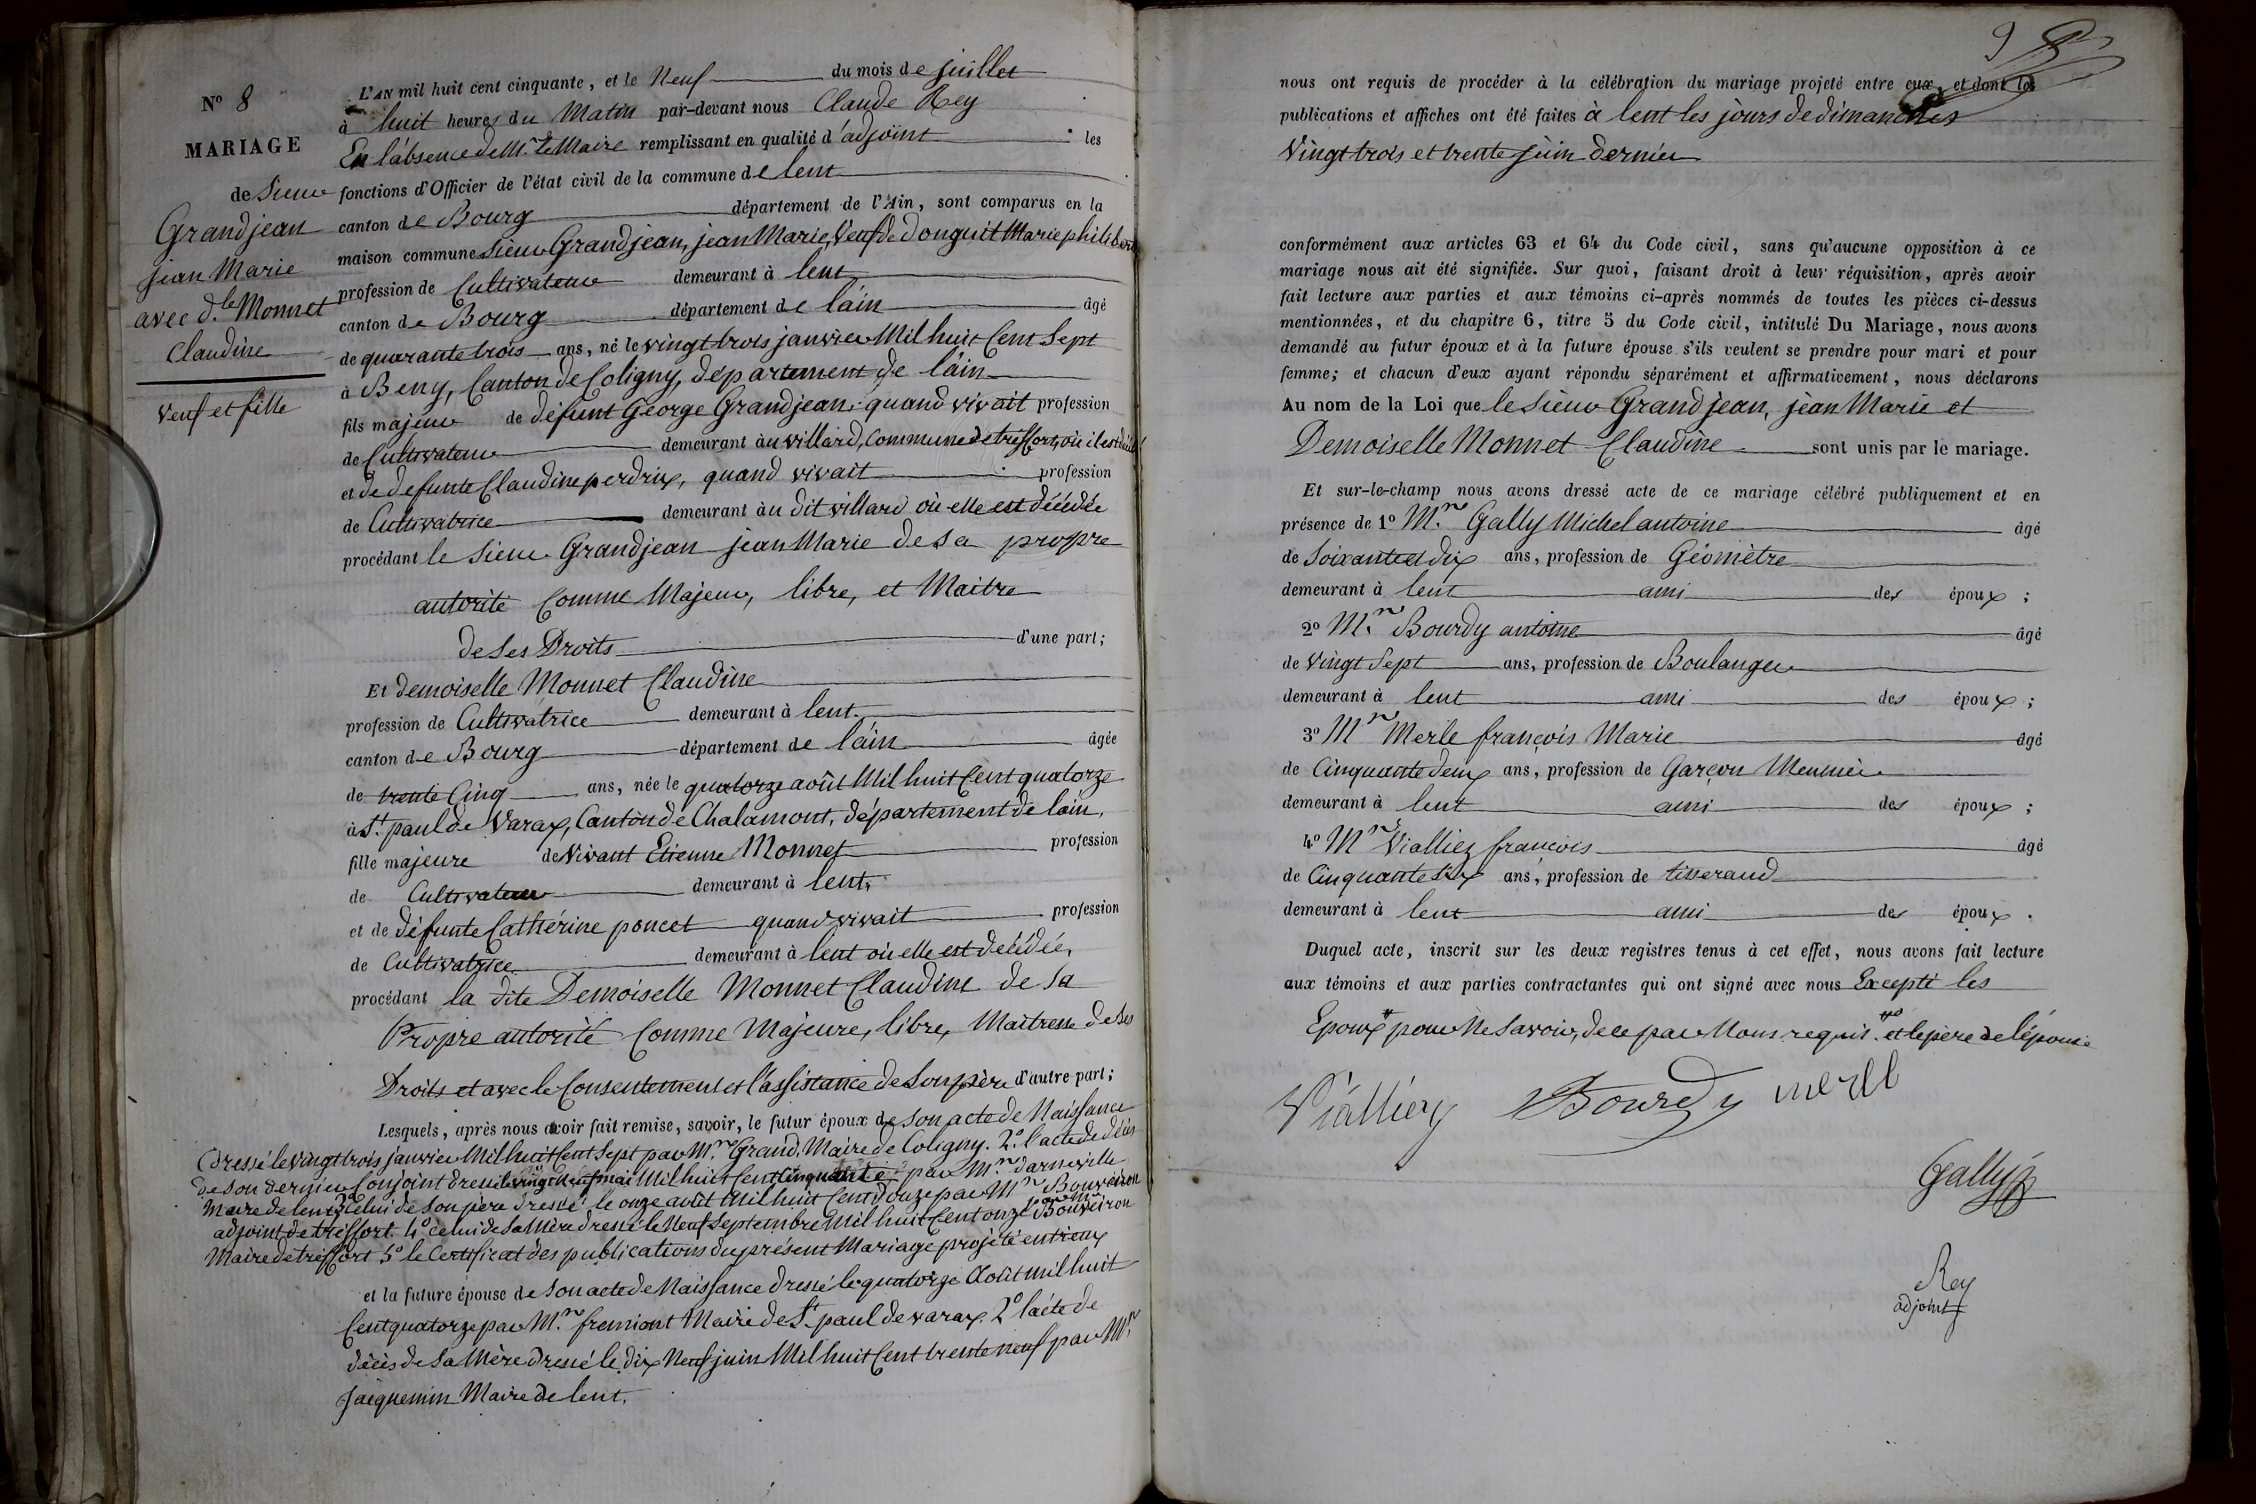 N° 8
MARIAGE
de Sieur
Grandjean
jean Marie
avec d.lle Monnet
Claudine
Veuf et fille
L'AN mil huit cent cinquante, et le Neuf du mois de juillet
à huit heures du Matin par-devant nous Claude Rey
En l'absence de Mr. le Maire remplissant en qualité d'adjoint les
fonctions d'Officier de l'état civil de la commune de lent
canton de Bourg département de l'Ain, sont comparus en la
maison commune Sieur Grandjean, jean Marie, Veuf de Donguit Marie philibert
profession de Cultivateur demeurant à lent
canton de Bourg département de l'ain âgé
de quarante trois ans, né le vingt trois janvier Mil huit Cent Sept
à Beny, Canton de Coligny, département de l'ain
fils majeur de défunt George Grandjean, quand vivait profession
de Cultivateur demeurant au villard, Commune de treffort, où il est décédé
et de defunte Claudine perdrix, quand vivait profession
de Cultivatrice demeurant au dit villard où elle est décédée
procédant le Sieur Grandjean jean Marie de sa propre
autorité Comme Majeur, libre, et Maitre
de Ses Droits d'une part;
Et demoiselle Monnet Claudine
profession de Cultivatrice demeurant à lent
canton de Bourg département de l'ain âgée
de trente Cinq ans, née le quatorze août Mil huit Cent quatorze
à St. paul de Varax, Canton de Chalamont, département de l'ain,
fille majeure de Vivant Etienne Monnet profession
de Cultivateur demeurant à lent,
et de défunte Cathérine poncet quand vivait profession
de Cultivatrice demeurant à lent où elle est décédée,
procédant la dite Demoiselle Monnet Claudine de Sa
Propre autorité Comme Majeure, libre, Maitresse de Ses
Droits et avec le Consentement et l'assistance de Son père d'autre part;
Lesquels, après nous avoir fait remise, savoir, le futur époux de son acte de Naissance
Dressé le vingt trois janvier Mil huit Cent Sept par Mr. Grand, Maire de Coligny. 2° l'acte de décès
de Son dernier Conjoint dressé le vingt Neuf mai Mil huit Cent Cinquante par Mr. darneville
Maire de lent 3° Celui de Son père dressé le onze août Mil huit Cent Douze par Mr Bouveiron
adjoint de treffort. 4° celui de Sa Mère dressé le Neuf Septembre Mil huit Cent onze par Mr Bouveiron
Maire de treffort 5° le Certificat des publications du présent Mariage projeté entr'eux
et la future épouse de Son acte de Naissance dressé le quatorze Août mil huit
Cent quatorze par Mr. fremiont Maire de St paul de varax. 2° l'acte de
décès de Sa Mère dressé le dix Neuf juin Mil huit Cent trente neuf par Mr.
Jacquemin Maire de lent.
9
nous ont requis de procéder à la célébration du mariage projeté entre eux, et dont les
publications et affiches ont été faites à lent les jours de dimanches
Vingt trois et trente juin dernier
conformément aux articles 63 et 64 du Code civil, sans qu'aucune opposition à ce
mariage nous ait été signifiée. Sur quoi, faisant droit à leur réquisition, après avoir
fait lecture aux parties et aux témoins ci-après nommés de toutes les pièces ci-dessus
mentionnées, et du chapitre 6, titre 5 du Code civil, intitulé Du Mariage, nous avons
demandé au futur époux et à la future épouse s'ils veulent se prendre pour mari et pour
femme; et chacun d'eux ayant répondu séparément et affirmativement, nous déclarons
Au nom de la Loi que le Sieur Grandjean, jean Marie et
Demoiselle Monnet Claudine sont unis par le mariage.
Et sur-le-champ nous avons dressé acte de ce mariage célébré publiquement et en
présence de 1° Mr. Gally Michel antoine âgé
de Soixante et dix ans, profession de Géomètre
demeurant à lent ami des époux;
2° Mr. Bourdy antoine âgé
de vingt Sept ans, profession de Boulanger
demeurant à lent ami des époux;
3° Mr Merle françois Marie âgé
de Cinquante deux ans, profession de Garçon Meunier
demeurant à lent ami des époux;
4° Mr Vialliez francois âgé
de Cinquante Six ans, profession de tisserand
demeurant à lent ami des époux.
Duquel acte, inscrit sur les deux registres tenus à cet effet, nous avons fait lecture
aux témoins et aux parties contractantes qui ont signé avec nous Excepté les
Epoux pour Ne Savoir, de ce par Nous requis. et le père de l'épouse
Vialliez Bourdy merle
Gally
Rey
adjoint